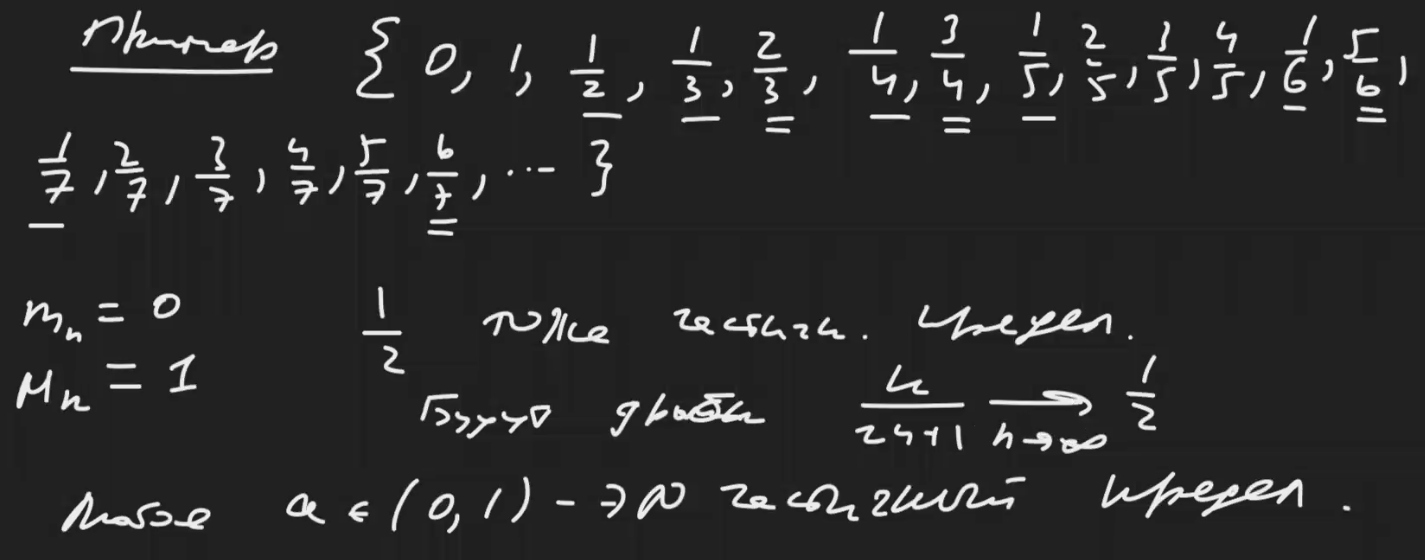 Пример { 0, 1, 1/2, 1/3, 2/3, 1/4, 3/4, 1/5, 2/5, 3/5, 4/5, 1/6, 5/6,
1/7, 2/7, 3/7, 4/7, 5/7, 6/7, ... }
m_n = 0
M_n = 1
1/2 тоже частичн. предел.
Будут дроби n/(2n+1) →_{n→∞} 1/2
Любое a ∈ (0, 1) - это частичный предел.